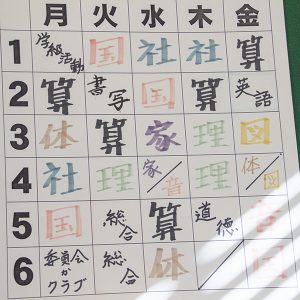 月 火 水 木 金
1 学級活動 国 社 社 算
2 算 書写 国 算 英語
3 体 算 家 理 図
4 社 理 家/音 理 体/図
5 国 総合 算 道徳 音
6 委員会かクラブ 総合 体 国